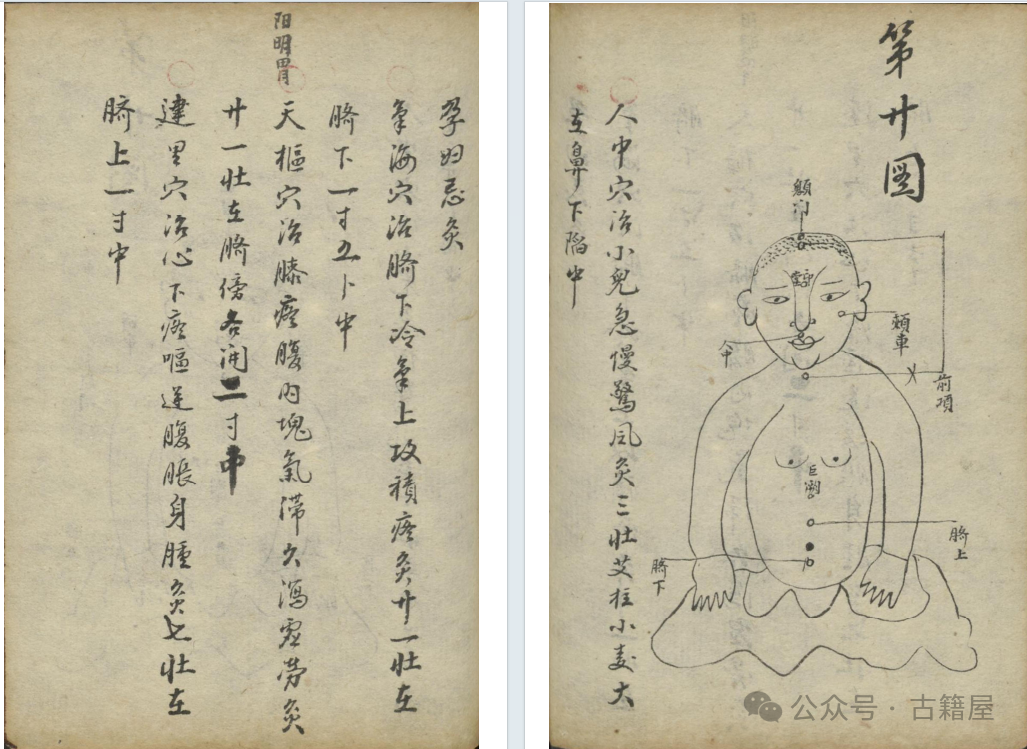 第廿圖
顖門
印堂
頰車
人中
前項
巨闕
臍上
臍下
人中穴治小兒急慢驚风灸三壮艾柱小麦大
在鼻下陷中
孕妇忌灸
氣海穴治臍下冷氣上攻積疼灸廿一壮在
臍下一寸五卜中
阳明胃
天樞穴治膝疼腹内塊氣滞久瀉虚劳灸
廿一壮在臍傍各開二寸中
建里穴治心下疼嘔逆腹脹身腫灸七壮在
臍上一寸中
公众号 · 古籍屋